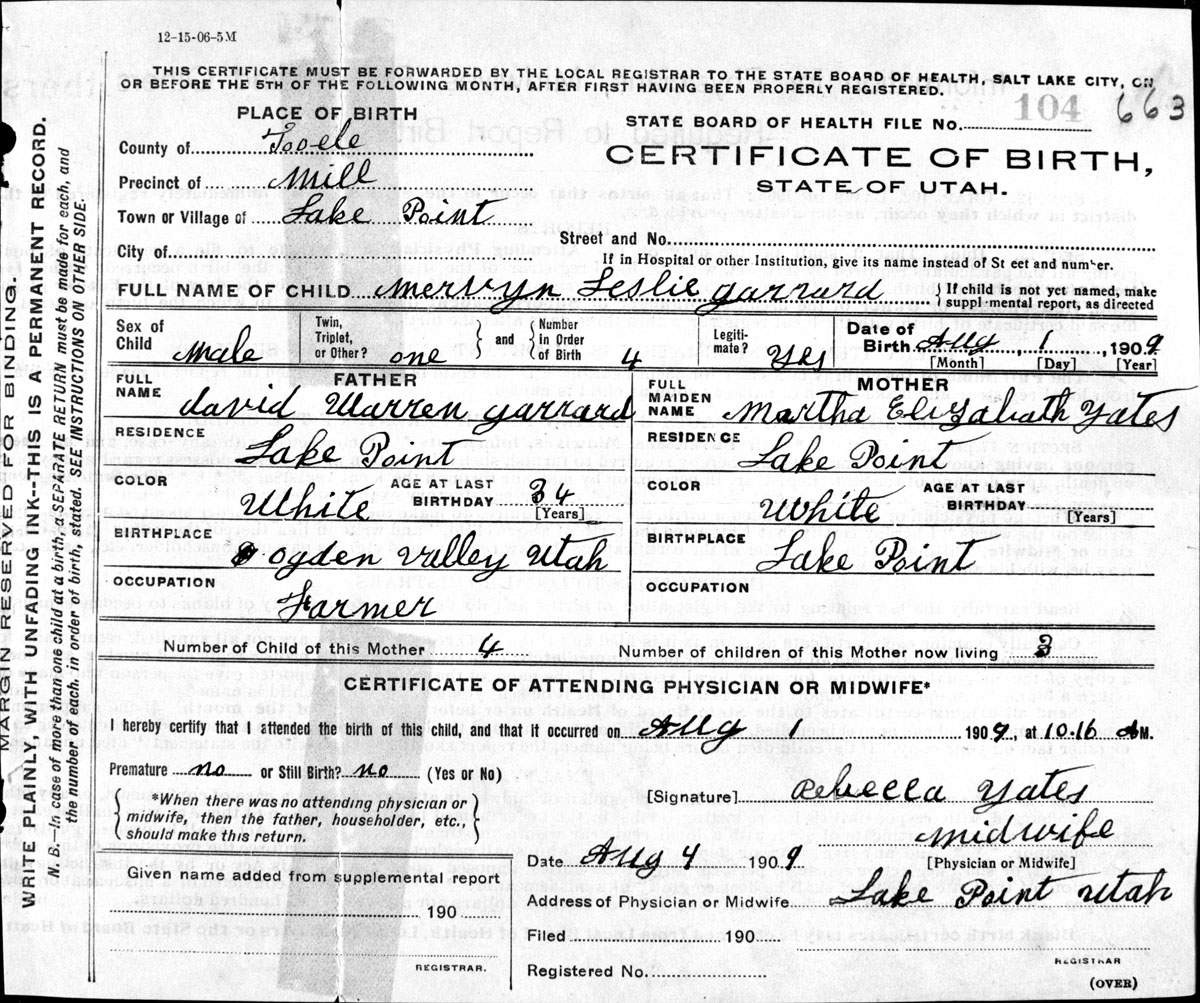 12-15-06-5M
THIS CERTIFICATE MUST BE FORWARDED BY THE LOCAL REGISTRAR TO THE STATE BOARD OF HEALTH, SALT LAKE CITY, ON
OR BEFORE THE 5TH OF THE FOLLOWING MONTH, AFTER FIRST HAVING BEEN PROPERLY REGISTERED.
PLACE OF BIRTH
County of Tooele
Precinct of Mill
Town or Village of Lake Point
City of
STATE BOARD OF HEALTH FILE No. 104 663
CERTIFICATE OF BIRTH,
STATE OF UTAH.
Street and No.
If in Hospital or other Institution, give its name instead of St eet and number.
FULL NAME OF CHILD Mervyn Leslie Garrard { If child is not yet named, make
suppl mental report, as directed
Sex of Child Male Twin, Triplet, or Other? one and Number in Order of Birth 4 Legiti-mate? Yes Date of Birth Aug, 1, 1909
[Month] [Day] [Year]
FATHER
FULL NAME David Warren Garrard
RESIDENCE Lake Point
COLOR White AGE AT LAST BIRTHDAY 34 [Years]
BIRTHPLACE Ogden Valley Utah
OCCUPATION Farmer
MOTHER
FULL MAIDEN NAME Martha Elizabath Yates
RESIDENCE Lake Point
COLOR White AGE AT LAST BIRTHDAY [Years]
BIRTHPLACE Lake Point
OCCUPATION
Number of Child of this Mother 4 Number of children of this Mother now living 3
CERTIFICATE OF ATTENDING PHYSICIAN OR MIDWIFE*
I hereby certify that I attended the birth of this child, and that it occurred on Aug 1 1909, at 10.16 AM.
Premature no or Still Birth? no (Yes or No)
*When there was no attending physician or
midwife, then the father, householder, etc.,
should make this return.
[Signature] Rebecca Yates
Midwife
[Physician or Midwife]
Date Aug 4 1909
Address of Physician or Midwife Lake Point Utah
Given name added from supplemental report
190
REGISTRAR.
Filed 190
REGISTRAR
Registered No.
(OVER)
MARGIN RESERVED FOR BINDING.
WRITE PLAINLY WITH UNFADING INK--THIS IS A PERMANENT RECORD.
N. B.--In case of more than one child at a birth, a SEPARATE RETURN must be made for each, and
the number of each, in order of birth, stated. SEE INSTRUCTIONS ON OTHER SIDE.